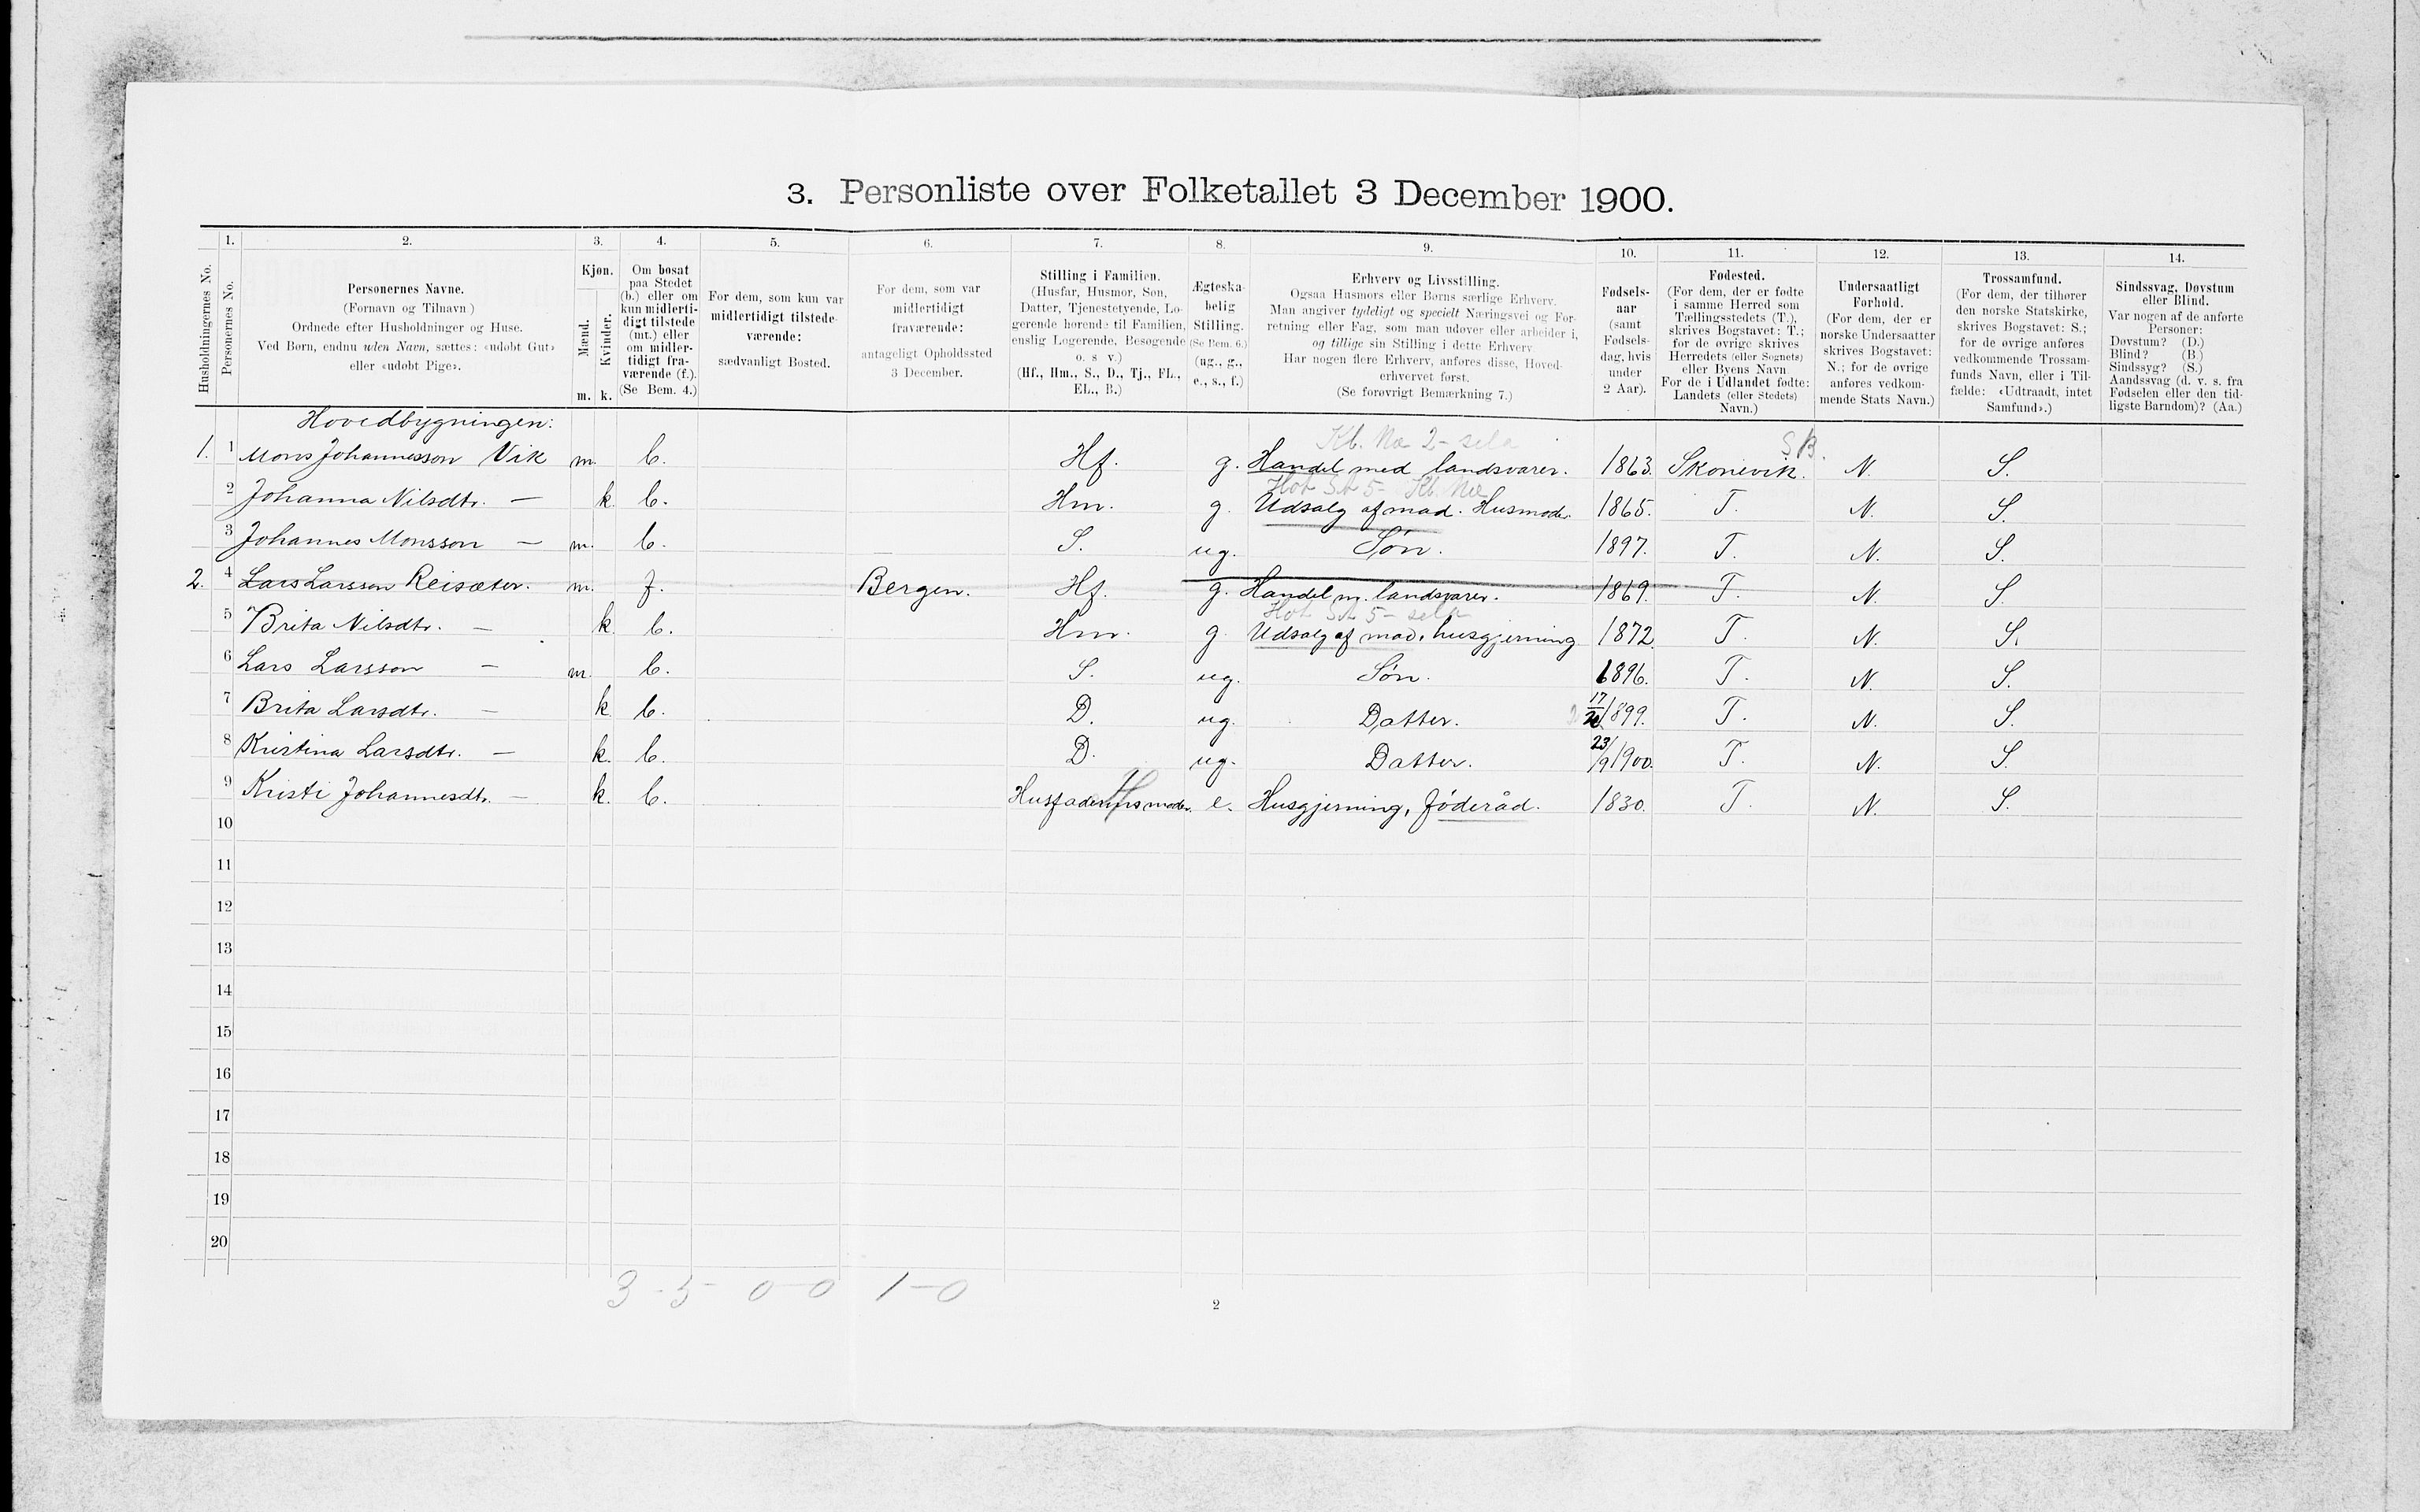 3. Personliste over Folketallet 3 December 1900.
1. 2. 3. 4. 5. 6. 7. 8. 9. 10. 11. 12. 13. 14.
Husholdningernes No.
Personernes No.
Personernes Navne.
(Fornavn og Tilnavn)
Ordnede efter Husholdninger og Huse.
Ved Børn, endnu uden Navn, sættes: «udøbt Gut»
eller «udøbt Pige».
Kjøn.
Mænd.
Kvinder.
m. k.
Om bosat
paa Stedet
(b.) eller om
kun midlerti-
digt tilstede
(mt.) eller
om midler-
tidigt fra-
værende (f.).
(Se Bem. 4.)
For dem, som kun var
midlertidigt tilstede-
værende:
sædvanligt Bosted.
For dem, som var
midlertidigt
fraværende:
antageligt Opholdssted
3 December.
Stilling i Familien.
(Husfar, Husmor, Søn,
Datter, Tjenestetyende, Lo-
gerende hørende til Familien,
enslig Logerende, Besøgende
o. s v.)
(Hf., Hm., S., D., Tj., FL.,
EL., B.)
Ægteska-
belig
Stilling.
(Se Bem. 6.)
(ug., g.,
e., s., f.)
Erhverv og Livsstilling.
Ogsaa Husmors eller Børns særlige Erhverv.
Man angiver tydeligt og specielt Næringsvei og For-
retning eller Fag, som man udøver eller arbeider i,
og tillige sin Stilling i dette Erhverv
Har nogen flere Erhverv, anføres disse, Hoved-
erhvervet først.
(Se forøvrigt Bemærkning 7.)
Fødsels-
aar
(samt
Fødsels-
dag, hvis
under
2 Aar).
Fødested.
(For dem, der er fødte
i samme Herred som
Tællingsstedets (T.),
skrives Bogstavet: T.;
for de øvrige skrives
Herredets (eller Sognets)
eller Byens Navn
For de i Udlandet fødte:
Landets (eller Stedets)
Navn.)
Undersaatligt
Forhold.
(For dem, der er
norske Undersaatter
skrives Bogstavet:
N.; for de øvrige
anføres vedkom-
mende Stats Navn.)
Trossamfund.
(For dem, der tilhører
den norske Statskirke,
skrives Bogstavet: S.;
for de øvrige anføres
vedkommende Trossam-
funds Navn, eller i Til-
fælde: «Udtraadt, intet
Samfund».)
Sindssvag, Døvstum
eller Blind.
Var nogen af de anførte
Personer:
Døvstum? (D.)
Blind? (B.)
Sindssyg? (S.)
Aandssvag (d. v. s. fra
Fødselen eller den tid-
ligste Barndom)? (Aa.)
Hovedbygningen:
Kb. Næ 2- selv SB.
1. 1 Mons Johannesson Vik m. b. Hf. g. Handel med landsvarer. 1863. Skonevik. N. S.
2 Johanna Nilsdtr. — k b. Hm. g. Udsalg af mad. Husmoder. 1865. T. N. S.
3 Johannes Monsson — m. b. S. ug. Søn. 1897. T. N. S.
2. 4 Lars Larsson Reisæter. m. f. Bergen. Hf. g. Handel m. landsvarer. 1869. T. N. S.
5 Brita Nilsdtr. — k b. Hm. g. Udsalg af mad, husgjerning 1872. T. N. S.
6 Lars Larsson — m. b. S. ug. Søn. 1896. T. N. S.
7 Brita Larsdtr. — k b. D. ug. Datter. 1899. T. N. S.
8 Kristina Larsdtr. — k. b. D. ug. Datter. 23/9 1900. T. N. S.
9 Kristi Johannesdtr. — k. b. Husfaderens moder. e. Husgjerning, föderåd. 1830. T. N. S.
10
11
12
13
14
15
16
17
18
19
20
3-5 0-0 1-0
2